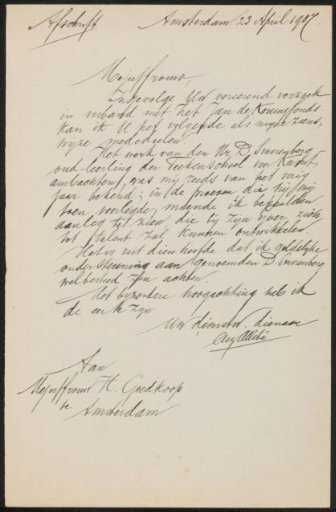 Afschrift Amsterdam 23 April 1907
Mejuffrouw,
Ingevolge Uw vereerend verzoek
in verband met het Jan de Koningfonds
kan ik U het volgende als mijne ziens,
wijze mededeelen.
Het werk van den Hr. D.
oud-leerling der Teekenschool voor Kunst,
ambachten, was mij reeds van het vorig
jaar bekend; in de proeven, die hij mij
toen voorlegde, meende ik bepaalden
aanleg te zien die bij zijn ijver zich
tot talent zal kunnen ontwikkelen.
Het is uit dien hoofde dat ik geldelijke
ondersteuning aan genoemden D.
welbesteed zou achten.
Met bijzondere hoogachting heb ik
de eer te zijn
Uw dienstw. dienaar
Aan
Mejuffrouw H. Goedkoop
te
Amsterdam